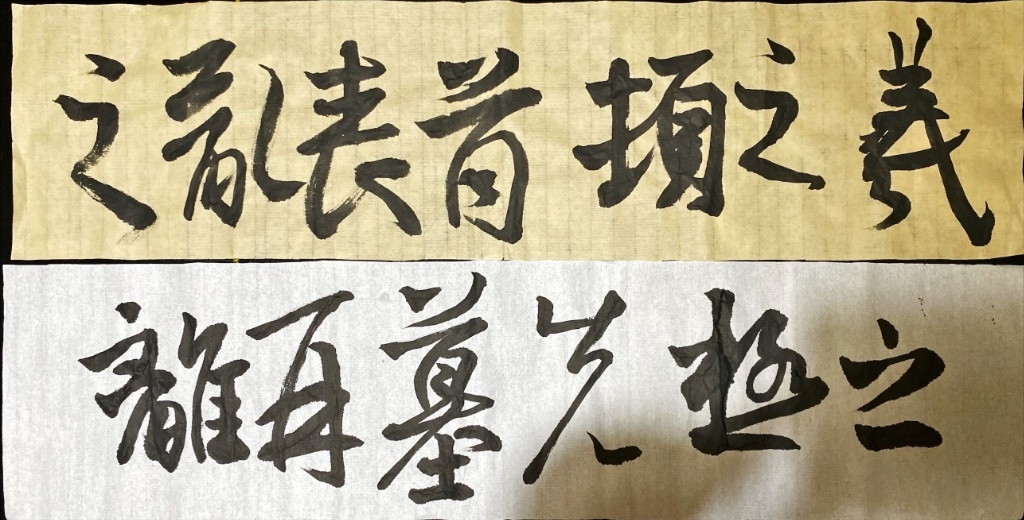 羲之頓首喪亂之
之極先墓再離